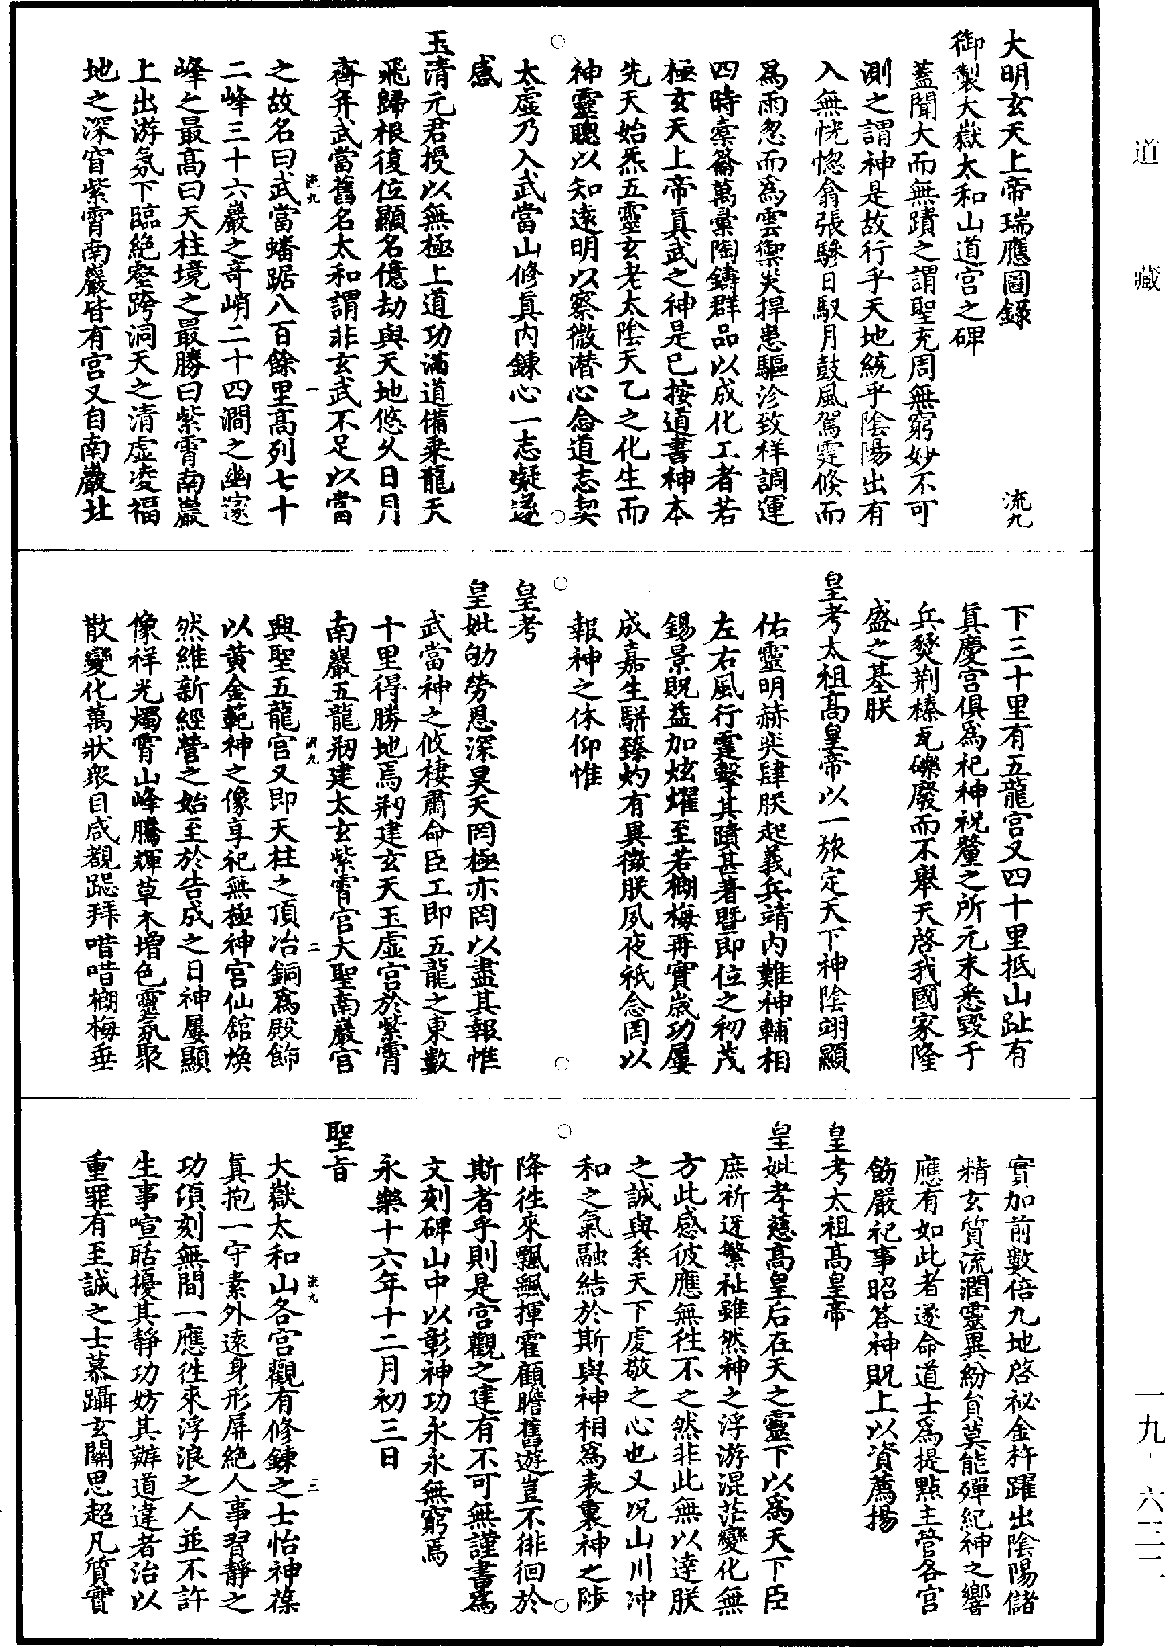 道藏
一九·六三二
大明玄天上帝瑞應圖錄
流九
御製大嶽太和山道宮之碑
蓋聞大而無蹟之謂聖充周無窮妙不可
測之謂神是故行乎天地統乎陰陽出有
入無恍惚翕張驂日馭月鼓風駕霆倏而
為雨忽而為雲禦災捍患驅沴致祥調運
四時橐籥萬彙陶鑄群品以成化工者若
極玄天上帝真武之神是已按道書神本
先天始炁五靈玄老太陰天乙之化生而
神靈聰以知遠明以察微潛心念道志契
太虛乃入武當山修真內鍊心一志凝遂
感
玉清元君授以無極上道功滿道備乘龍天
飛歸根復位顯名億劫與天地悠久日月
齊并武當舊名太和謂非玄武不足以當
流九 一
之故名曰武當蟠踞八百餘里高列七十
二峰三十六巖之奇峭二十四澗之幽邃
峰之最高曰天柱境之最勝曰紫霄南巖
上出游氛下臨絕壑跨洞天之清虛凌福
地之深窅紫霄南巖皆有宮又自南巖北
下三十里有五龍宮又四十里抵山趾有
真慶宮俱為祀神祝釐之所元末悉毀于
兵燹荆榛瓦礫廢而不舉天啓我國家隆
盛之基朕
皇考太祖高皇帝以一旅定天下神陰翊顯
佑靈明赫奕肆朕起義兵靖內難神輔相
左右風行霆擊其蹟甚著暨即位之初茂
錫景貺益加炫燿至若榔梅再實歲功屢
成嘉生駢臻灼有異徵朕夙夜祗念罔以
報神之休仰惟
皇考
皇妣劬勞恩深昊天罔極亦罔以盡其報惟
武當神之攸棲肅命臣工即五龍之東數
十里得勝地焉剏建玄天玉虛宮於紫霄
南巖五龍剏建太玄紫霄宮大聖南巖宮
流九 二
興聖五龍宮又即天柱之頂冶銅為殿飾
以黃金範神之像享祀無極神宮仙舘煥
然維新經營之始至於告成之日神屢顯
像祥光燭霄山峰騰輝草木增色靈氛聚
散變化萬狀衆目咸覩跽拜嗜嗜榔梅垂
實加前數倍九地啓祕金杵躍出陰陽儲
精玄質流潤靈異紛貟莫能殫紀神之響
應有如此者遂命道士為提點主管各宮
飭嚴祀事昭荅神貺上以資薦揚
皇考太祖高皇帝
皇妣孝慈高皇后在天之靈下以為天下臣
庶祈迓繁祉雖然神之浮游混茫變化無
方此感彼應無往不之然非此無以達朕
之誠與系天下虔敬之心也又況山川沖
和之氣融結於斯與神相為表裏神之陟
降往來飄飄揮霍顧瞻舊遊豈不徘徊於
斯者乎則是宮觀之建有不可無謹書為
文刻碑山中以彰神功永永無窮焉
永樂十六年十二月初三日
聖旨
流九 三
大嶽太和山各宮觀有修鍊之士怡神葆
真抱一守素外遠身形屏絕人事習靜之
功頃刻無間一應往來浮浪之人並不許
生事喧聒擾其靜功妨其辦道違者治以
重罪有至誠之士慕躡玄關思超凡質實